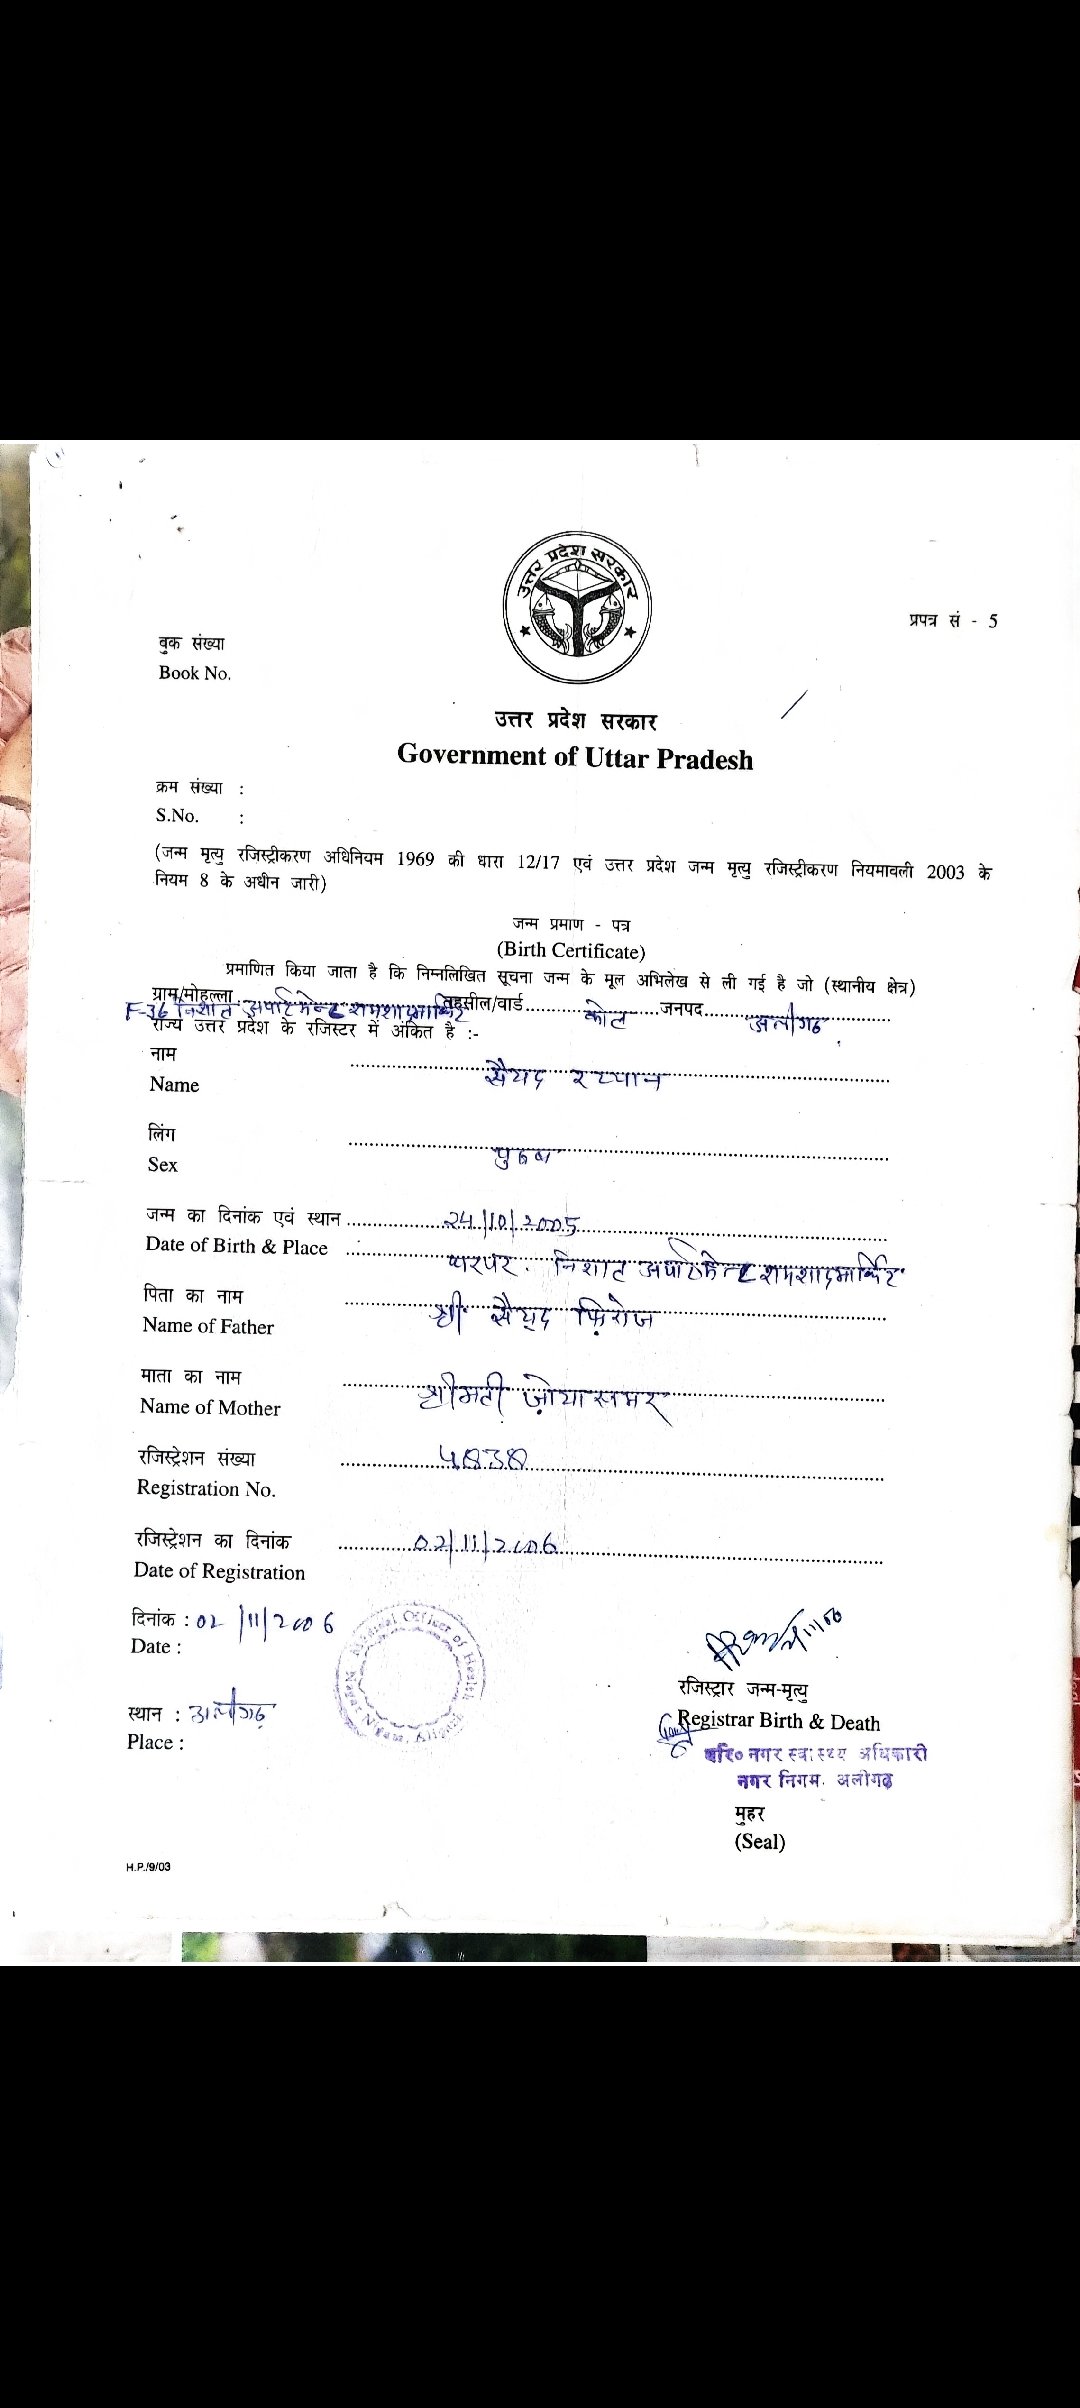 उत्तर प्रदेश सरकार
प्रपत्र सं - 5
बुक संख्या
Book No.
उत्तर प्रदेश सरकार
Government of Uttar Pradesh
क्रम संख्या :
S.No. :
(जन्म मृत्यु रजिस्ट्रीकरण अधिनियम 1969 की धारा 12/17 एवं उत्तर प्रदेश जन्म मृत्यु रजिस्ट्रीकरण नियमावली 2003 के
नियम 8 के अधीन जारी)
जन्म प्रमाण - पत्र
(Birth Certificate)
प्रमाणित किया जाता है कि निम्नलिखित सूचना जन्म के मूल अभिलेख से ली गई है जो (स्थानीय क्षेत्र)
ग्राम/मोहल्ला F-36 निशात अपार्टमेन्ट शमशाद मार्किट तहसील/वार्ड कोल जनपद अलीगढ़
राज्य उत्तर प्रदेश के रजिस्टर में अंकित है :-
नाम
Name सैयद रय्यान
लिंग
Sex पुरुष
जन्म का दिनांक एवं स्थान 24/10/2005
Date of Birth & Place घर पर निशात अपार्टमेन्ट शमशाद मार्किट
पिता का नाम
Name of Father श्री सैयद फ़िरोज
माता का नाम
Name of Mother श्रीमती ज़ोया समर
रजिस्ट्रेशन संख्या
Registration No.
रजिस्ट्रेशन का दिनांक 02/11/2006
Date of Registration
दिनांक : 02/11/2006
Date :
Medical Officer of Health
Nagar Nigam, Aligarh
रजिस्ट्रार जन्म-मृत्यु
स्थान : अलीगढ़
Registrar Birth & Death
Place :
वरि० नगर स्वास्थ्य अधिकारी
नगर निगम, अलीगढ़
मुहर
(Seal)
H.P./9/03